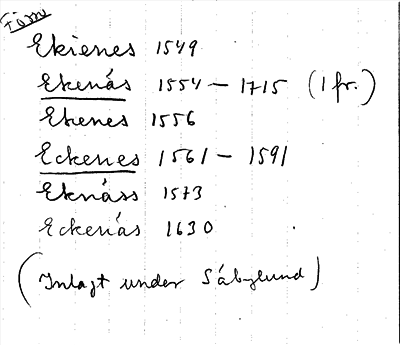 Form
Ekienes 1549
Ekenäs 1554 – 1715 (1 fr.)
Ekenes 1556
Eckenes 1561 – 1591
Eknäss 1573
Eckenäs 1630
(Inlagt under Säbylund)